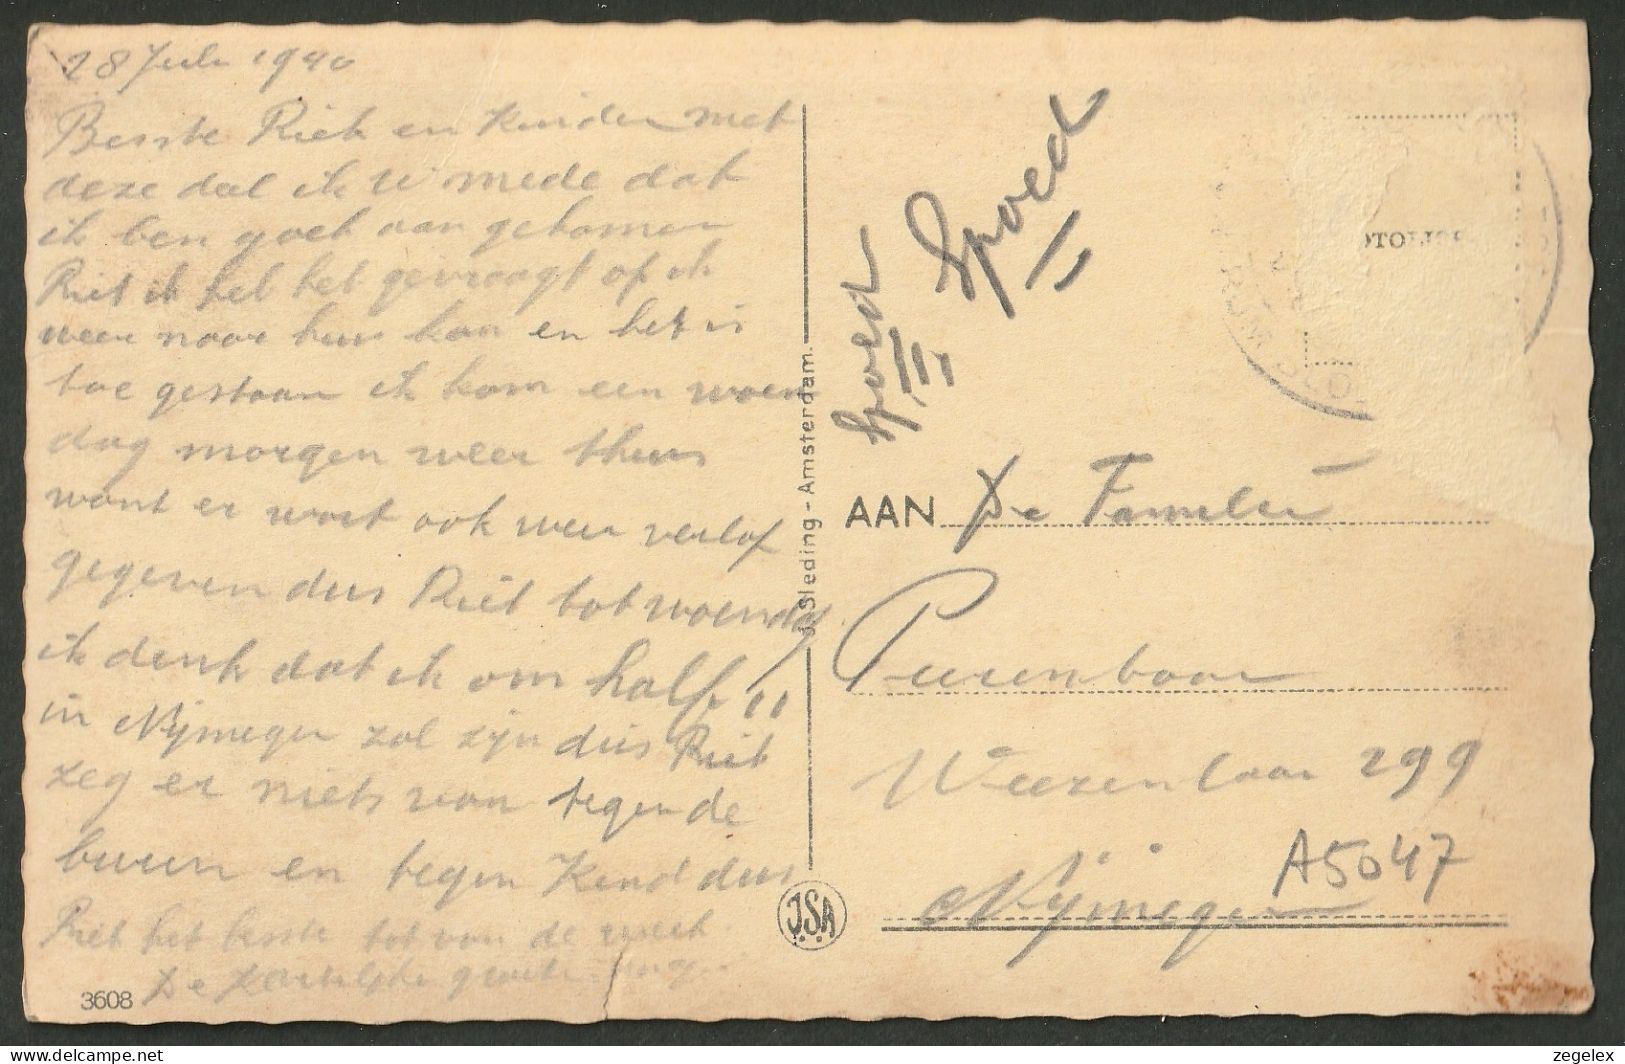 28 Juli 1940
Beste Riek en Kinder met
deze deel ik U mede dat
ik ben goet aan gekomen
Riet ik heb het gevraagt of ik
weer naar huis kan en het is
toe gestaan ik kom een woens
dag morgen weer thuis
want er wort ook weer verlof
gegeven dus Riet tot woensdag
ik denk dat ik om half 11
in Nijmegen zal zijn dus Riet
zeg er niets van tegen de
buren en tegen Kind dus
Riet het beste tot van de week
De Hartelijke groeten
3608
J. Sleding - Amsterdam.
JSA
Spoed
Spoed
AAN De Familie
Peerenboom
Weezenlaan 299
Nijmegen
A5047
zegelex
www.delcampe.net